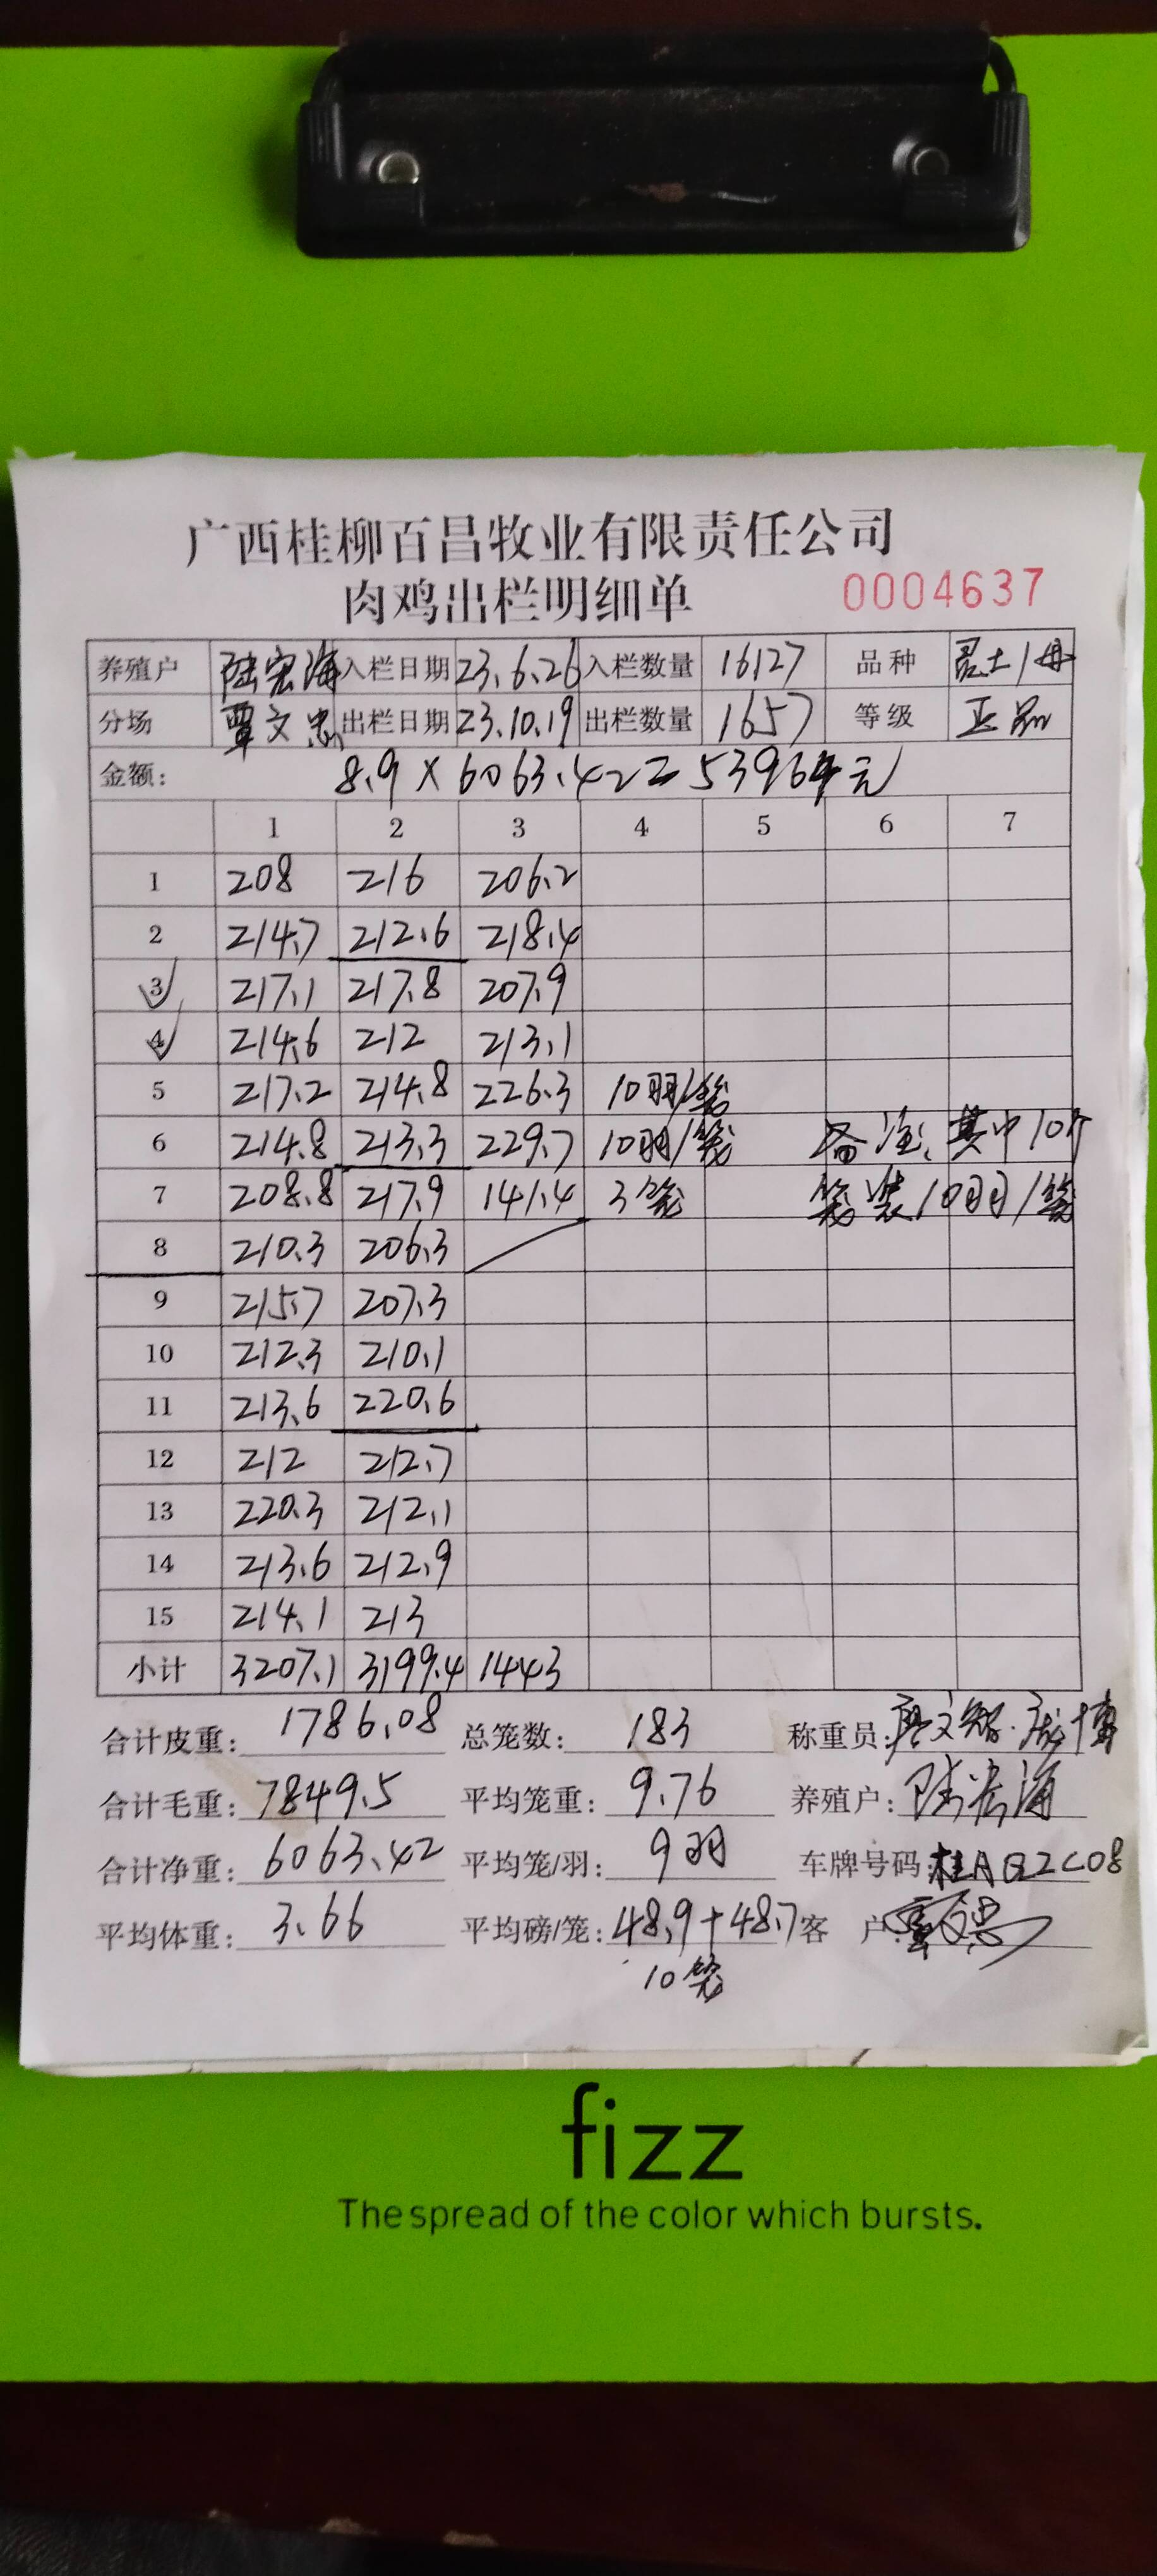 广西桂柳百昌牧业有限责任公司
肉鸡出栏明细单 0004637
养殖户 陆宏海 入栏日期 23.6.26 入栏数量 16127 品种 土1母
分场 覃文忠 出栏日期 23.10.19 出栏数量 1657 等级 正品
金额: 8.9×6063.42=53964元
1 2 3 4 5 6 7
1 208 216 206.2
2 214.7 212.6 218.4
3 217.1 217.8 207.9
4 214.6 212 213.1
5 217.2 214.8 226.3 10羽/笼
6 214.8 213.3 229.7 10羽/笼 备注:其中10个
7 208.8 217.9 141.4 3笼 笼装10羽/笼
8 210.3 206.3
9 215.7 207.3
10 212.3 210.1
11 213.6 220.6
12 212 212.7
13 220.3 212.1
14 213.6 212.9
15 214.1 213
小计 3207.1 3199.4 1443
合计皮重: 1786.08 总笼数: 183 称重员:
合计毛重: 7849.5 平均笼重: 9.76 养殖户: 陆宏海
合计净重: 6063.42 平均笼/羽: 9羽 车牌号码: 桂AG2C08
平均体重: 3.66 平均磅/笼: 48.9+48.7 客 户: 覃文忠
10笼
fizz
The spread of the color which bursts.